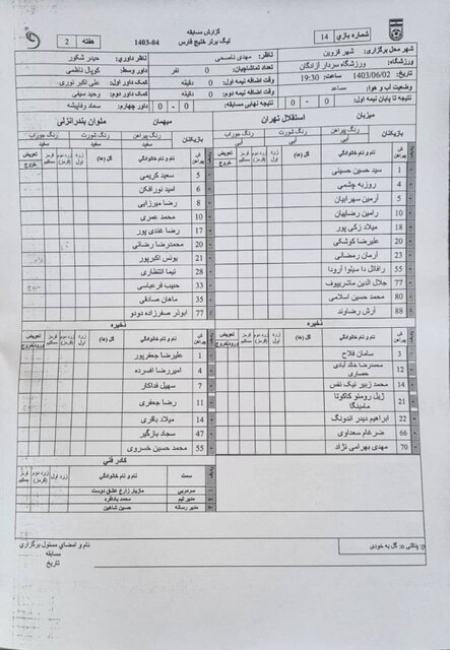 شماره بازی 14
گزارش مسابقه
لیگ برتر خلیج فارس 04-1403
هفته 2
شهر محل برگزاری: شهر قزوین
ناظر: مهدی ناصحی
ناظر داوری: حیدر شکور
ورزشگاه: ورزشگاه سردار آزادگان
تعداد تماشاچیان: نفر
داور وسط: کوپال ناظمی
تاریخ: 1403/06/02 ساعت: 19:30
وقت اضافه نیمه اول: 0 دقیقه
کمک داور اول: علی اکبر نوری
وضعیت آب و هوا: مساعد
وقت اضافه نیمه دوم: 0 دقیقه
کمک داور دوم: وحید سیفی
نتیجه تا پایان نیمه اول: 0 - 0
نتیجه نهایی مسابقه: 0 - 0
داور چهارم:
میزبان استقلال تهران
میهمان ملوان بندرانزلی
بازیکنان رنگ پیراهن آبی رنگ شورت آبی رنگ جوراب آبی
بازیکنان رنگ پیراهن سفید رنگ شورت سفید رنگ جوراب سفید
ش پیراهن نام و نام خانوادگی گل (ها)
1 سید حسین حسینی
4 روزبه چشمی
5 آرمین سهرابیان
10 رامین رضاییان
18 میلاد زکی پور
20 علیرضا کوشکی
23 آرمان رمضانی
55 رافائل دا سیلوا آرودا
77 جلال الدین ماشاریپوف
80 محمد حسین اسلامی
88 آرش رضاوند
ذخیره
ش پیراهن نام و نام خانوادگی گل (ها)
3 سامان فلاح
12 محمدرضا خالد آبادی
14 محمد زبیر نیک نفس
21 ژیل رومنو کاکوتا مامینگا
22 ابراهیم نیدر اندونگ
66 ضرغام سعداوی
70 مهدی بهرامی نژاد
ش پیراهن نام و نام خانوادگی گل (ها)
5 سعید کریمی
6 امید نورافکن
8 رضا میرزایی
10 محمد عمری
17 رضا غندی پور
20 محمدرضا رضائی
21 یونس اکبرپور
28 نیما انتظاری
33 حبیب فرعباسی
35 ماهان صادقی
77 ابوذر صفرزاده دودو
ذخیره
ش پیراهن نام و نام خانوادگی گل (ها)
1 علیرضا جعفرپور
4 امیررضا افسرده
7 سهیل فداکار
11 رضا جعفری
14 میلاد باقری
47 سجاد بازگیر
55 محمد حسین خسروی
کادر فنی
سمت نام و نام خانوادگی
سرمربی مازیار زارع عشق دوست
مدیر تیم
مدیر رسانه حسین شاهین
p: پنالتی o: گل به خودی
نام و امضای مسئول برگزاری
مسابقه
تاریخ